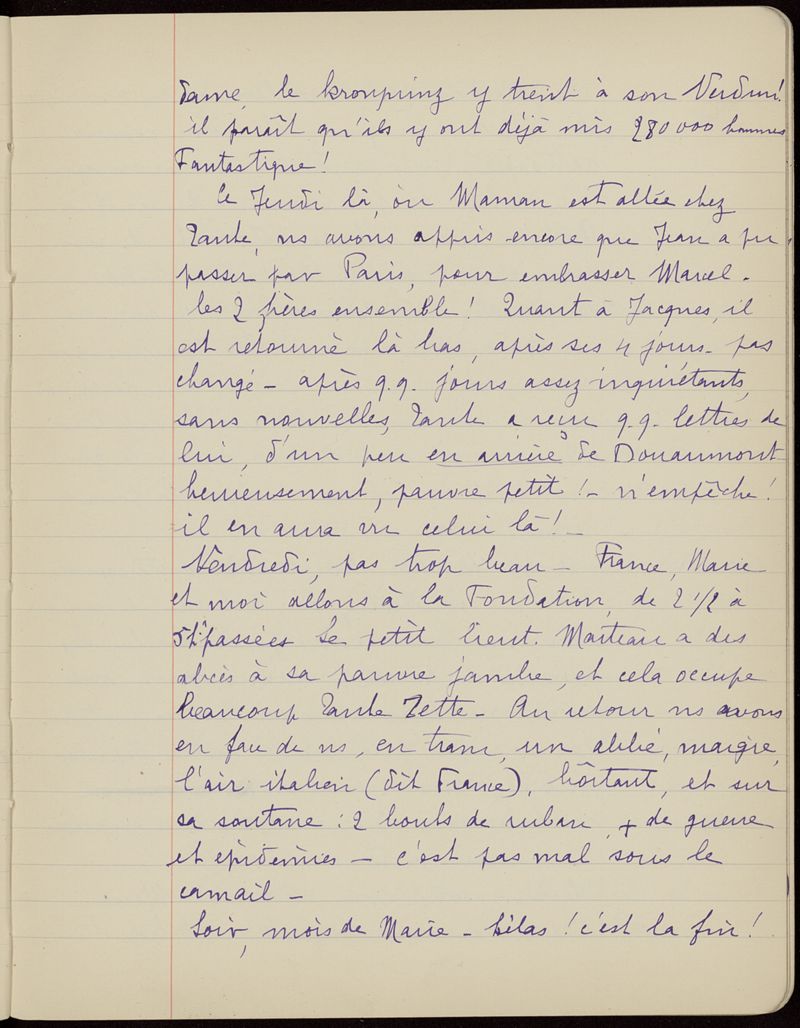 Dame, le kronprinz y tient à son Verdun!
il paraît qu'ils y ont déjà mis 280 000 hommes
Fantastique!
Ce Jeudi là, où Maman est allée chez
Tante, ns avons appris encore que Jean a pu
passer par Paris, pour embrasser Marcel.
les 2 frères ensemble! Quant à Jacques, il
est retourné là bas, après ses 4 jours. pas
changé - après q.q. jours assez inquiétants,
sans nouvelles, Tante a reçu q.q. lettres de
lui, d'un peu en arrière de Douaumont
heureusement, pauvre petit! - n'empêche!
il en aura vu celui là! -
Vendredi, pas trop beau - France, Marie
et moi allons à la Fondation, de 2 1/2 à
5h passées Le petit lieut. Marteau a des
abcès à sa pauvre jambe, et cela occupe
beaucoup Tante Zette - Au retour ns avons
en face de ns, en tram, un abbé, maigre,
l'air italien (dit France), boîtant, et sur
sa soutane: 2 bouts de ruban, + de guerre
et épidémies - c'est pas mal sous le
camail -
Soir, mois de Marie - hélas! c'est la fin!